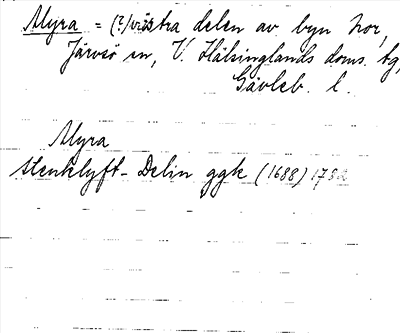 Myra = (?) västra delen av byn Nor,
Järvsö sn, V. Hälsinglands doms. tg,
Gävleb. l.
Myra
Stenklyft- Delin ggk (1688) 1752